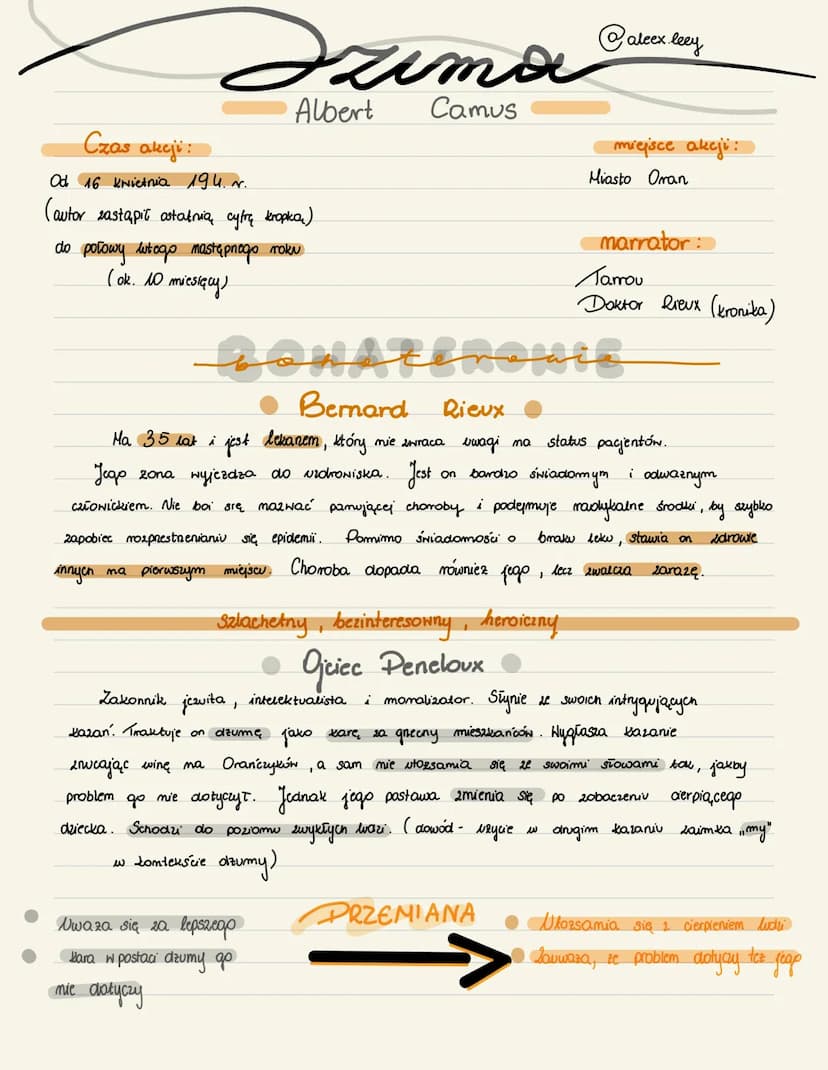 @aleex.leey
Dżuma
Albert Camus
Czas akcji:
Od 16 kwietnia 194. r.
(autor zastąpił ostatnią cyfrę kropką)
do połowy lutego następnego roku
(ok. 10 miesięcy)
miejsce akcji:
Miasto Oran
narrator:
Tarrou
Doktor Rieux (kronika)
BOHATEROWIE
bohaterowie
Bernard Rieux
Ma 35 lat i jest lekarzem, który nie zwraca uwagi na status pacjentów.
Jego żona wyjeżdża do uzdrowiska. Jest on bardzo świadomym i odważnym
człowiekiem. Nie boi się nazwać panującej choroby i podejmuje radykalne środki, by szybko
zapobiec rozprzestrzenianiu się epidemii. Pomimo świadomości o braku leku, stawia on zdrowie
innych na pierwszym miejscu. Choroba dopada również jego, lecz zwalcza zarazę.
szlachetny, bezinteresowny, heroiczny
Ojciec Peneloux
Zakonnik jezuita, intelektualista i moralizator. Słynie ze swoich intrygujących
kazań. Traktuje on dżumę jako karę za grzechy mieszkańców. Wygłasza kazanie
zrzucając winę na Orańczyków, a sam nie utożsamia się ze swoimi słowami tak, jakby
problem go nie dotyczył. Jednak jego postawa zmienia się po zobaczeniu cierpiącego
dziecka. Schodzi do poziomu zwykłych ludzi. (dowód - użycie w drugim kazaniu zaimka "my"
w kontekście dżumy)
PRZEMIANA
Uważa się za lepszego
kara w postaci dżumy go
nie dotyczy
Utożsamia się z cierpieniem ludzi
Zauważa, że problem dotyczy też jego